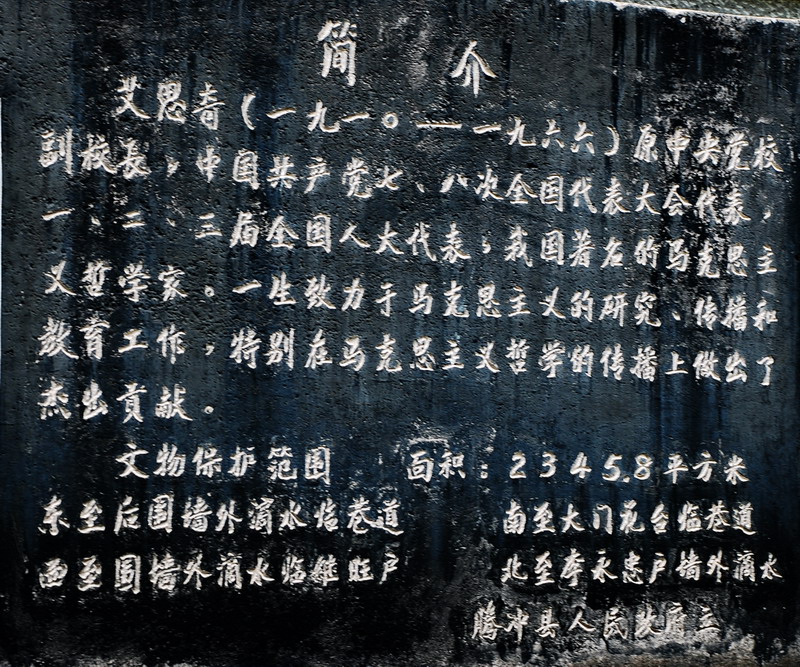 简介
艾思奇（一九一〇——一九六六）原中央党校
副校长，中国共产党七、八次全国代表大会代表，
一、二、三届全国人大代表；我国著名的马克思主
义哲学家。一生致力于马克思主义的研究、传播和
教育工作，特别在马克思主义哲学的传播上做出了
杰出贡献。
文物保护范围 面积：2345.8平方米
东至后围墙外滴水临巷道 南至大门花台临巷道
西至围墙外滴水临 旺户 北至李永忠户墙外滴水
腾冲县人民政府立